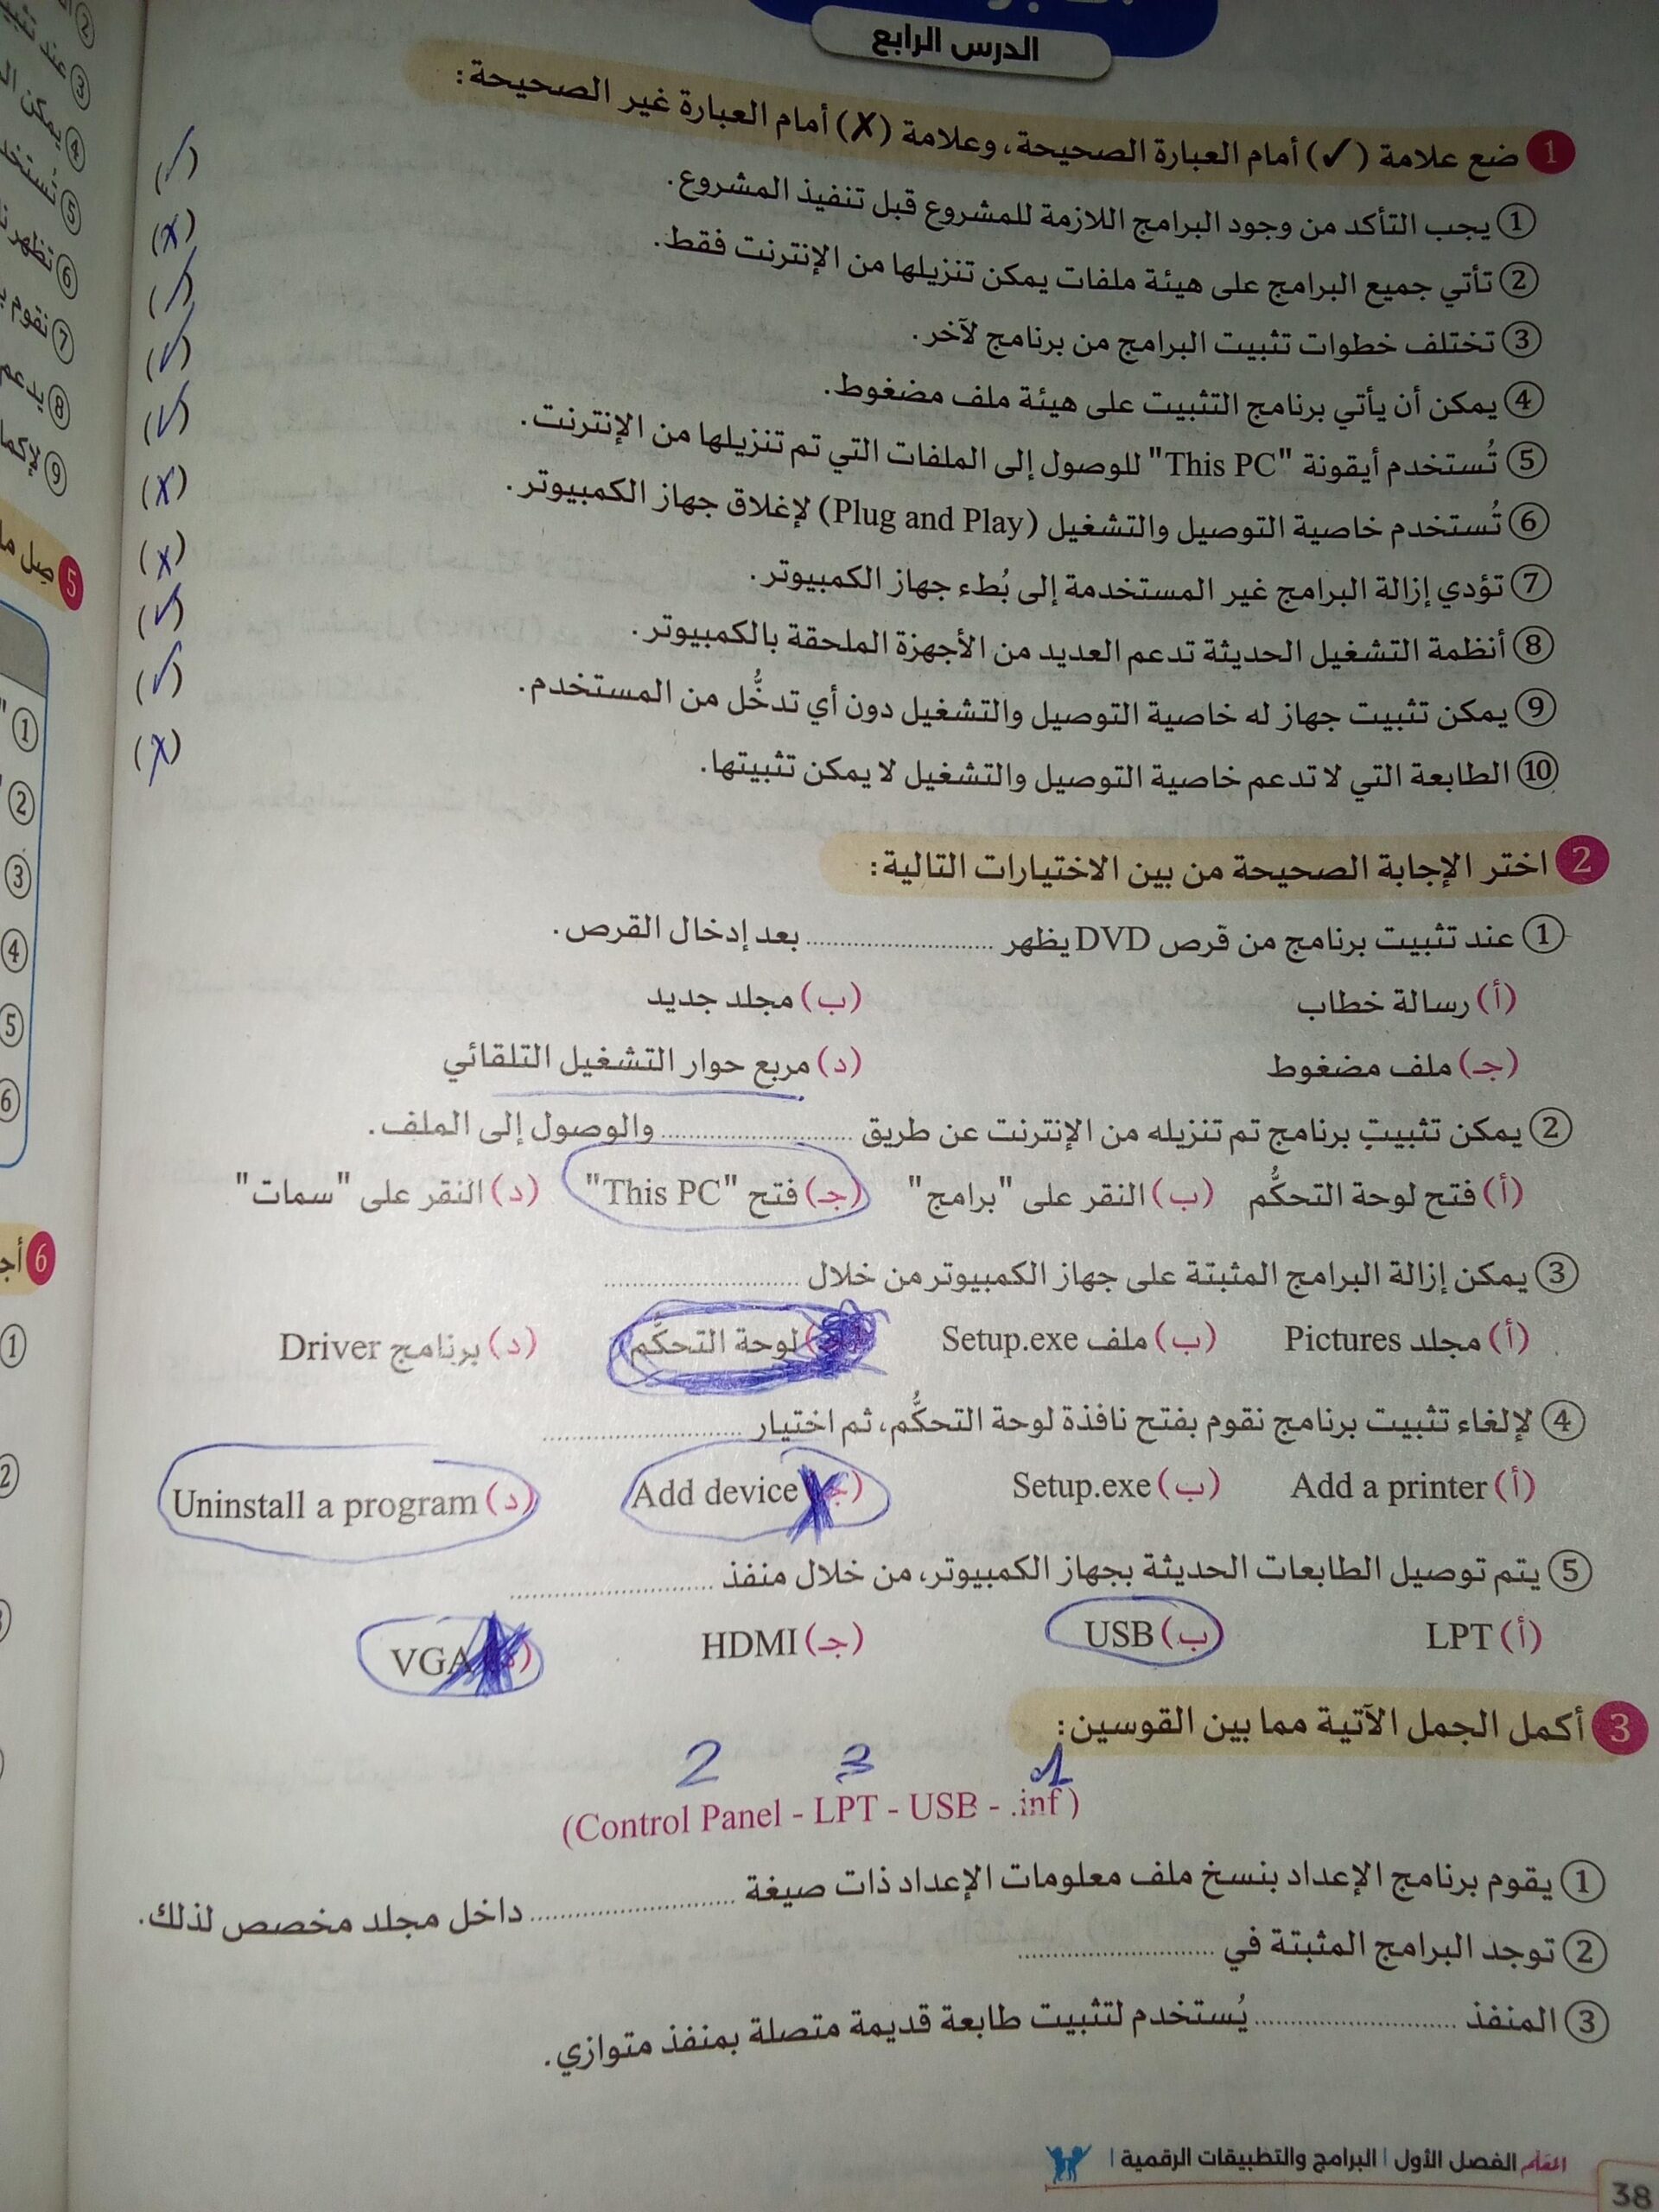 الدرس الرابع
1 ضع علامة (✓) أمام العبارة الصحيحة، وعلامة (✗) أمام العبارة غير الصحيحة:
① يجب التأكد من وجود البرامج اللازمة للمشروع قبل تنفيذ المشروع. (✓)
② تأتي جميع البرامج على هيئة ملفات يمكن تنزيلها من الإنترنت فقط. (✗)
③ تختلف خطوات تثبيت البرامج من برنامج لآخر. (✓)
④ يمكن أن يأتي برنامج التثبيت على هيئة ملف مضغوط. (✓)
⑤ تُستخدم أيقونة "This PC" للوصول إلى الملفات التي تم تنزيلها من الإنترنت. (✓)
⑥ تُستخدم خاصية التوصيل والتشغيل (Plug and Play) لإغلاق جهاز الكمبيوتر. (✗)
⑦ تؤدي إزالة البرامج غير المستخدمة إلى بُطء جهاز الكمبيوتر. (✗)
⑧ أنظمة التشغيل الحديثة تدعم العديد من الأجهزة الملحقة بالكمبيوتر. (✓)
⑨ يمكن تثبيت جهاز له خاصية التوصيل والتشغيل دون أي تدخُّل من المستخدم. (✓)
⑩ الطابعة التي لا تدعم خاصية التوصيل والتشغيل لا يمكن تثبيتها. (✗)
2 اختر الإجابة الصحيحة من بين الاختيارات التالية:
① عند تثبيت برنامج من قرص DVD يظهر .......................... بعد إدخال القرص.
(أ) رسالة خطاب (ب) مجلد جديد
(جـ) ملف مضغوط (د) مربع حوار التشغيل التلقائي
② يمكن تثبيت برنامج تم تنزيله من الإنترنت عن طريق .......................... والوصول إلى الملف.
(أ) فتح لوحة التحكُّم (ب) النقر على "برامج" (جـ) فتح "This PC" (د) النقر على "سمات"
③ يمكن إزالة البرامج المثبتة على جهاز الكمبيوتر من خلال ..........................
(أ) مجلد Pictures (ب) ملف Setup.exe لوحة التحكُّم (د) برنامج Driver
④ لإلغاء تثبيت برنامج نقوم بفتح نافذة لوحة التحكُّم، ثم اختيار ..........................
(أ) Add a printer (ب) Setup.exe (جـ) Add device (د) Uninstall a program
⑤ يتم توصيل الطابعات الحديثة بجهاز الكمبيوتر، من خلال منفذ ..........................
(أ) LPT (ب) USB (جـ) HDMI (د) VGA
3 أكمل الجمل الآتية مما بين القوسين:
2 3 1
(Control Panel - LPT - USB - .inf)
① يقوم برنامج الإعداد بنسخ ملف معلومات الإعداد ذات صيغة .......................... داخل مجلد مخصص لذلك.
② توجد البرامج المثبتة في ..........................
③ المنفذ .......................... يُستخدم لتثبيت طابعة قديمة متصلة بمنفذ متوازي.
المعلم الفصل الأول | البرامج والتطبيقات الرقمية |
38
② 
③ عند
④ يمكن
⑤ تستخد
⑥ تظهر
⑦ نقوم
⑧ يدعم
⑨ لإكما
5 صل
①
②
③
④
⑤
⑥
6 أج
①
②